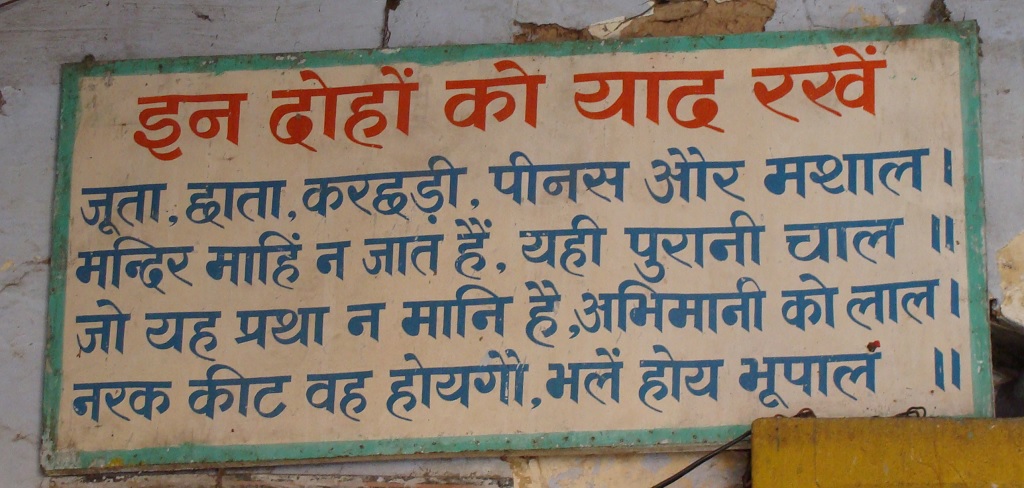 इन दोहों को याद रखें
जूता, छाता, करछड़ी, पीनस और मशाल।
मन्दिर माहिं न जात हैं, यही पुरानी चाल ॥
जो यह प्रथा न मानि है, अभिमानी को लाल।
नरक कीट वह होयगौ, भलें होय भूपाल ॥